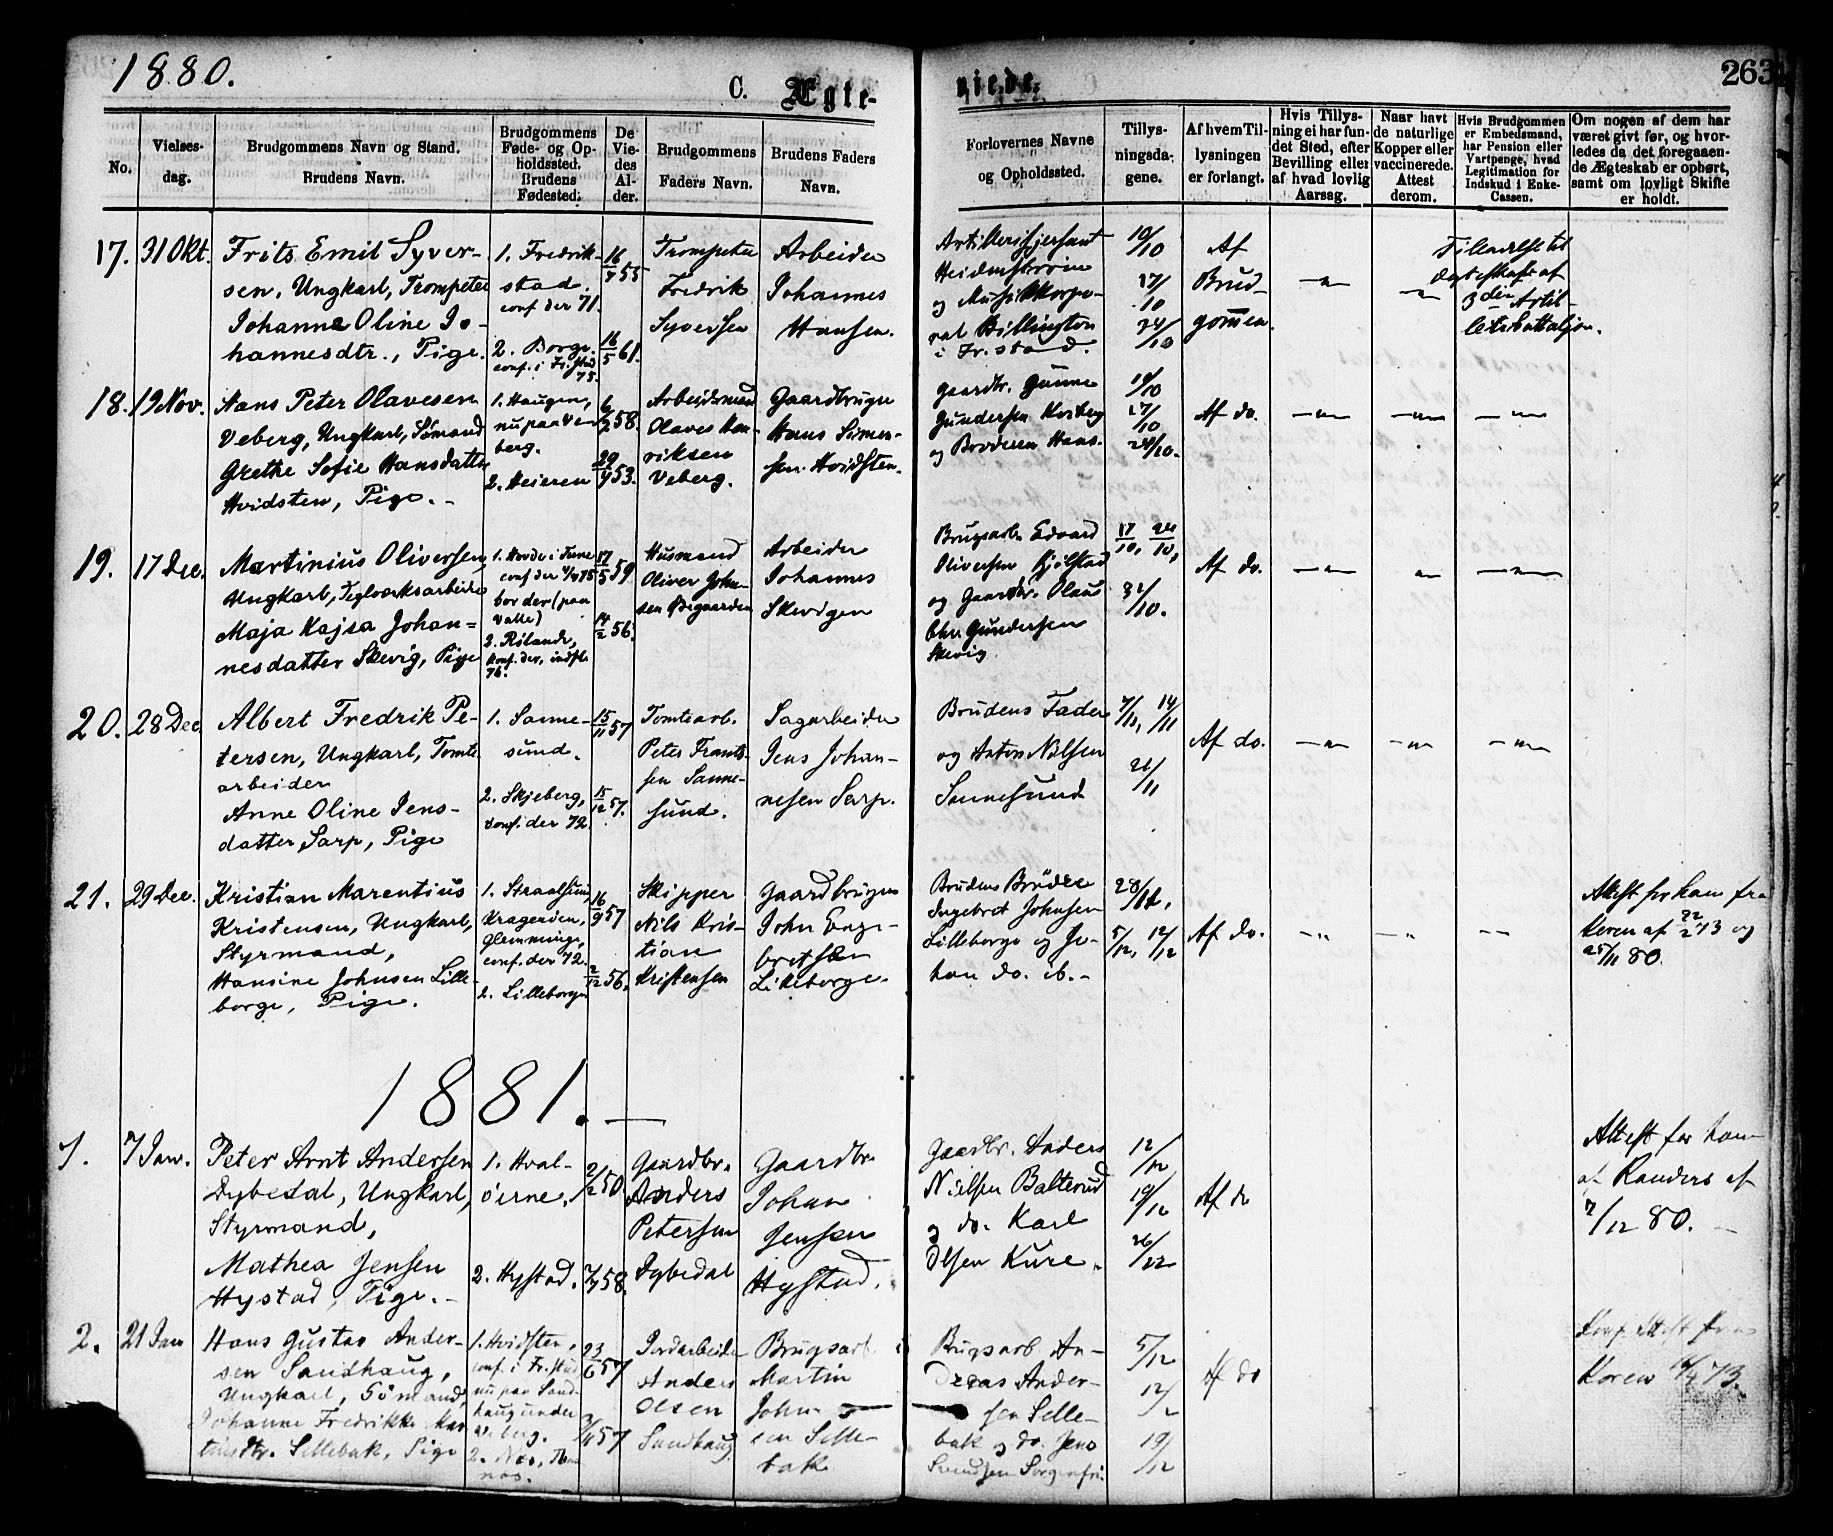 1880.
C. Ægte-
viede.
263
No.
Vielses-
dag.
Brudgommens Navn og Stand.
Brudens Navn.
Brudgommens
Føde- og Op-
holdssted.
Brudens
Fødested.
De
Vie-
des
Al-
der.
Brudgommens
Faders Navn.
Brudens Faders
Navn.
Forlovernes Navne
og Opholdssted.
Tillys-
ningsda-
gene.
Af hvem Til-
lysningen
er forlangt.
Hvis Tillys-
ning ei har fun-
det Sted, efter
Bevilling eller
af hvad lovlig
Aarsag.
Naar havt
de naturlige
Kopper eller
vaccinerede.
Attest
derom.
Hvis Brudgommen
er Embedsmand,
har Pension eller
Vartpenge, hvad
Legitimation for
Indskud i Enke-
Cassen.
Om nogen af dem har
været givt før, og hvor-
ledes da det foregaaen-
de Ægteskab er ophørt,
samt om lovligt Skifte
er holdt.
17.
31 Okt.
Frits Emil Syver-
sen, Ungkarl, Trompeter
Johanne Oline Jo-
hannesdtr., Pige.
1. Fredrik-
stad.
conf. der 71.
2. Borge.
conf. i Fr.stad
75.
16/7 55
16/5 61.
Trompeter
Fredrik
Syversen
Arbeider
Johannes
Hansen.
Artillerisjersant
og Musikkorpo-
ral Hillington
i Fr.stad.
10/10
17/10
24/10
Af
Brud-
gommen.
-"-
-"-
Tilladelse til
Ægteskab af
3die Artil-
leribattaljon.
18.
19 Nov.
Hans Peter Olavesen
Veberg, Ungkarl, Sømand
Grethe Sofie Hansdatter
Hvidsten, Pige.-
1. Haugen,
nu paa Ve-
berg.
2. Heieren
58.
29/4 53.
Arbeidsmand
Olaves Hen-
riksen
Veberg.
Gaardbruger
Hans Simen-
sen Hvidsten.
Gaardbr. Gunne
Gundersen
og Broderen Hans.
10/10
17/10
24/10.
Af do.
-"-
-"-
-"-
19.
17 Dec.
Martinius Oliversen,
Ungkarl, Teglværksarbeider
Maja Kajsa Johan-
nesdatter Skevig, Pige
1. Hovde i Tune
conf der 75
bor der (paa
Valle)
2. Rølande,
konf. der, indfl.
76.
17/5 59
14/2 56.
Husmand
Oliver John-
sen Øegaarden
Arbeider
Johannes
Skevigen
Brugsarb. Edvard
Oliversen Kjølstad
og Gaardbr. Olaus
Chr. Gundersen
Skevig
17/10, 24/10,
31/10.
Af do.
-"-
"
-"-
20.
28 Dec
Albert Fredrik Pe-
tersen, Ungkarl, Tomte-
arbeider
Anne Oline Jens-
datter Sarp, Pige
1. Sanne-
sund.
2. Skjeberg,
conf. der 72.
15/11 57
15/12 57.
Tomtearb.
Peter Frants-
sen Sanne-
sund.
Sagarbeider
Jens Johan-
nesen Sarp.
Brudens Fader
og Anton Nilsen
Sannesund
7/11, 14/11
21/11
Af do.
-"-
-"-
-"-
21.
29 Dec.
Kristian Marentius
Kristensen, Ungkarl,
Styrmand,
Hansine Johnsen Lille-
borge, Pige.
1. Straalsund,
Kragerøen,
Glemminge,
conf. der 72.
2. Lilleborge
16/9 57
2/12 56.
Skipper
Nils Kris-
tian
Kristensen
Gaardbruger
John Enge-
bretsen
Lilleborge.
Brudens Brødre
Ingebret Johnsen
Lilleborge og Jo-
han do. ib.-
28/11,
5/12, 12/12
Af do.
-"-
-"-
-"-
Attest for ham fra
Koren af 22/2 73 og
25/11 80.
1881.-
1.
7 Jan.
Peter Arnt Andersen
Dybedal, Ungkarl,
Styrmand,
Mathea Jensen
Hystad, Pige.-
1. Hval-
øerne.
2. Hystad.
2/2 50
7/7 58.
Gaardbr.
Anders
Petersen
Dybedal
Gaardbr.
Johan
Jensen
Hystad.
Gaardbr. Anders
Nielsen Balterud
og do. Karl
Olsen Kure.
12/12
19/12
26/12
Af do
Attest for ham
af Randers af
7/12 80.
2.
21 Jan
Hans Gustav Ander-
sen Sandhaug,
Ungkarl, Sømand,
Johanne Fredrikke Mar-
tinsdtr. Sellebak, Pige
1. Hvidsten,
conf. i Fr.stad,
nu paa Sand-
haug under
Veberg.
23/6 57
57
Jordarbeider
Anders
Olsen
Sandhaug
Brugsarb.
Martin
John-
sen Selle-
bak
Brugsarb An-
dreas Ander-
sen Selle-
bak og do. Jens
Svendsen Sorgenfri.
5/12
12/12
19/12
Af do
Konf. Attest fra
Koren 73.